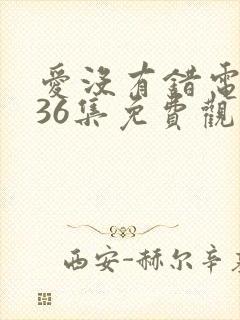 愛沒有錯電
36集免費觀
西安-赫尔辛